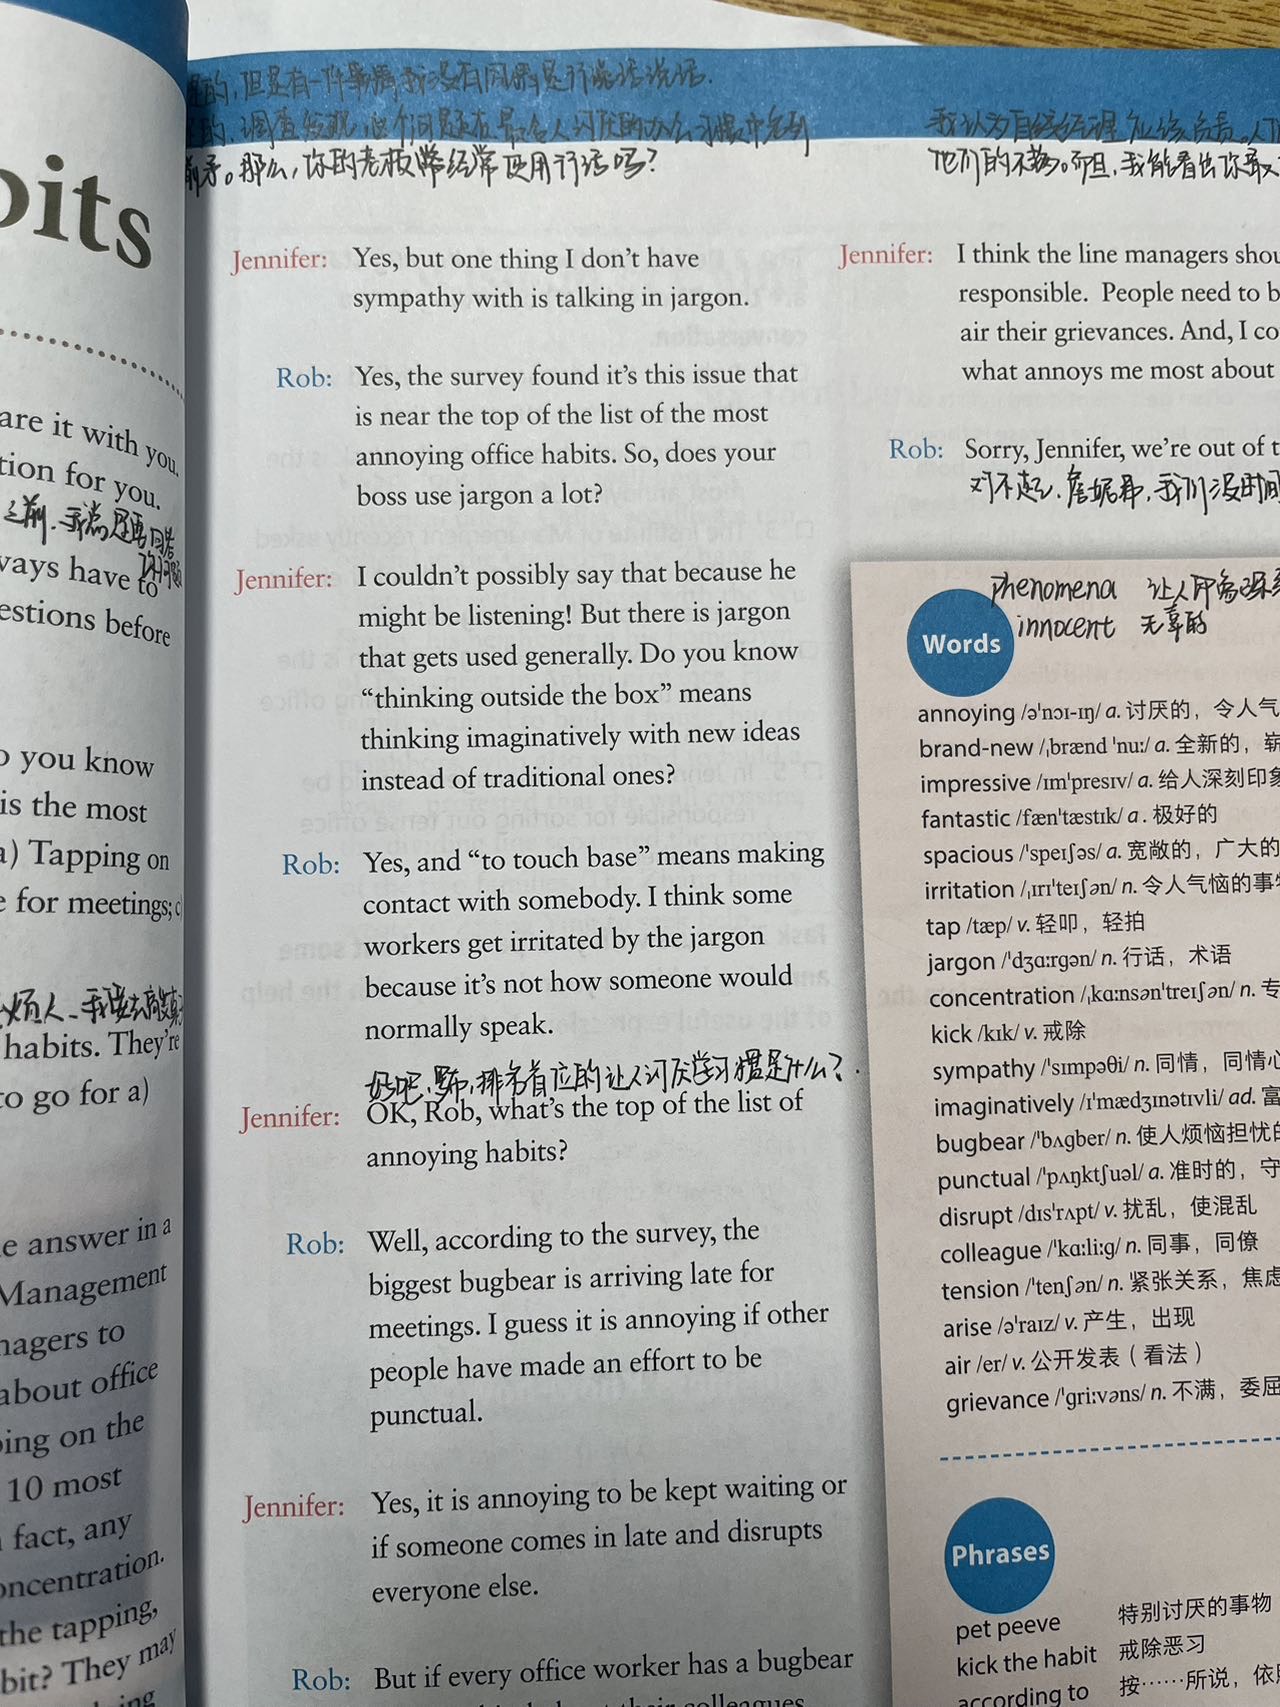 bits
are it with you.
tion for you.
ways have to
estions before
o you know
is the most
a) Tapping on
e for meetings; c)
habits. They're
to go for a)
e answer in a
Management
nagers to
about office
ping on the
10 most
n fact, any
oncentration.
the tapping,
bit? They may
那么,你的老板常经常使用行话吗?
Jennifer: Yes, but one thing I don't have
sympathy with is talking in jargon.
Rob: Yes, the survey found it's this issue that
is near the top of the list of the most
annoying office habits. So, does your
boss use jargon a lot?
Jennifer: I couldn't possibly say that because he
might be listening! But there is jargon
that gets used generally. Do you know
“thinking outside the box” means
thinking imaginatively with new ideas
instead of traditional ones?
Rob: Yes, and “to touch base” means making
contact with somebody. I think some
workers get irritated by the jargon
because it's not how someone would
normally speak.
排名首位的让人讨厌学习惯是什么?
Jennifer: OK, Rob, what's the top of the list of
annoying habits?
Rob: Well, according to the survey, the
biggest bugbear is arriving late for
meetings. I guess it is annoying if other
people have made an effort to be
punctual.
Jennifer: Yes, it is annoying to be kept waiting or
if someone comes in late and disrupts
everyone else.
Rob: But if every office worker has a bugbear
他们的不满。而且,我能看出你最
Jennifer: I think the line managers shou
responsible. People need to b
air their grievances. And, I co
what annoys me most about
Rob: Sorry, Jennifer, we're out of t
对不起,詹妮弗,我们没时间
phenomena 让人印象深
innocent 无辜的
Words
annoying /ə'nɔɪ-ɪŋ/ a. 讨厌的，令人气
brand-new /ˌbrænd 'nuː/ a. 全新的，崭
impressive /ɪm'presɪv/ a. 给人深刻印象
fantastic /fæn'tæstɪk/ a. 极好的
spacious /'speɪʃəs/ a. 宽敞的，广大的
irritation /ˌɪrɪ'teɪʃən/ n. 令人气恼的事物
tap /tæp/ v. 轻叩，轻拍
jargon /'dʒɑːrgən/ n. 行话，术语
concentration /ˌkɑːnsən'treɪʃən/ n. 专
kick /kɪk/ v. 戒除
sympathy /'sɪmpəθi/ n. 同情，同情心
imaginatively /ɪ'mædʒɪnətɪvli/ ad. 富
bugbear /'bʌgber/ n. 使人烦恼担忧的
punctual /'pʌŋktʃuəl/ a. 准时的，守
disrupt /dɪs'rʌpt/ v. 扰乱，使混乱
colleague /'kɑːliːg/ n. 同事，同僚
tension /'tenʃən/ n. 紧张关系，焦虑
arise /ə'raɪz/ v. 产生，出现
air /er/ v. 公开发表（看法）
grievance /'griːvəns/ n. 不满，委屈
Phrases
pet peeve 特别讨厌的事物
kick the habit 戒除恶习
according to 按……所说，依照